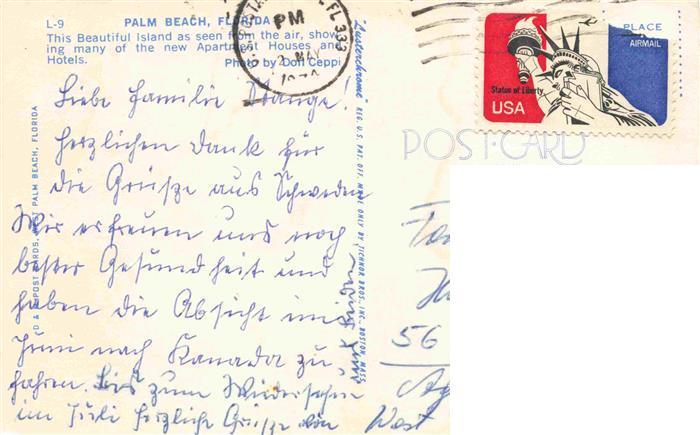 L-9 PALM BEACH, FLORIDA
This Beautiful Island as seen from the air, show-
ing many of the new Apartment Houses and
Hotels. Photo by Don Ceppi
PM
FL 333
MAY
Statue of Liberty
USA
PLACE
AIRMAIL
POST CARD
"Lusterchrome" REG. U.S. PAT. OFF. MADE ONLY BY TICHNOR BROS., INC., BOSTON, MASS.
POST CARDS, PALM BEACH, FLORIDA
Liebe Familie Stange!
Herzlichen Dank für
die Grüße aus Schweden
Wir erfreuen uns noch
bester Gesundheit und
haben die Absicht im
Juni nach Kanada zu
fahren. Bis zum Wiedersehen
im Juli herzliche Grüße von
56
West